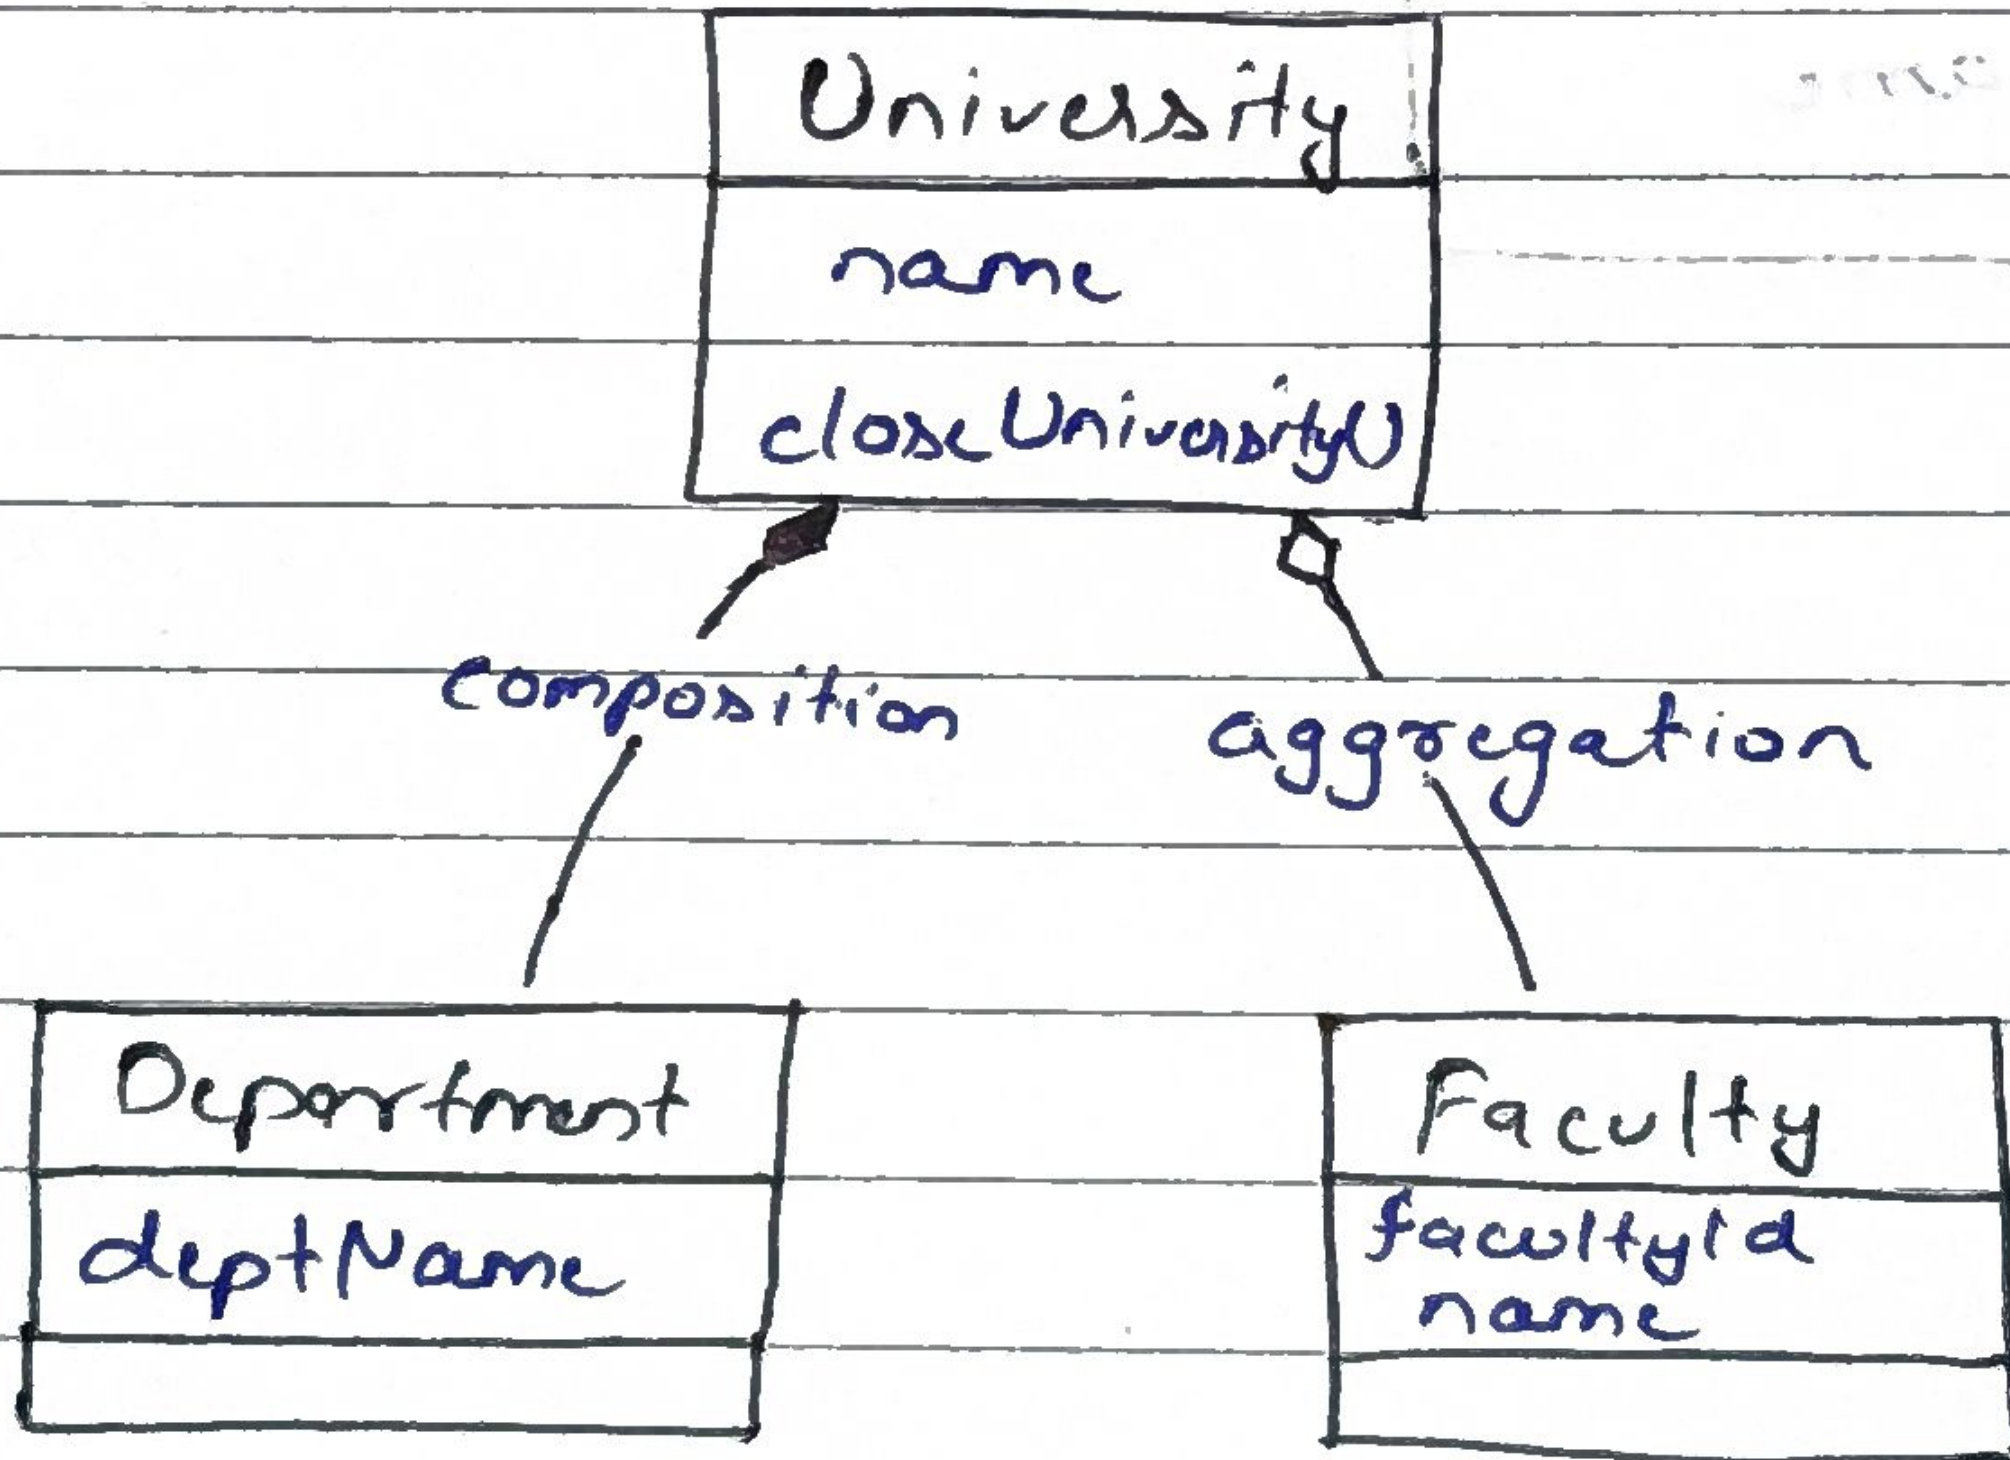 University
name
closeUniversity()
composition
aggregation
Department
deptName
Faculty
facultyId
name